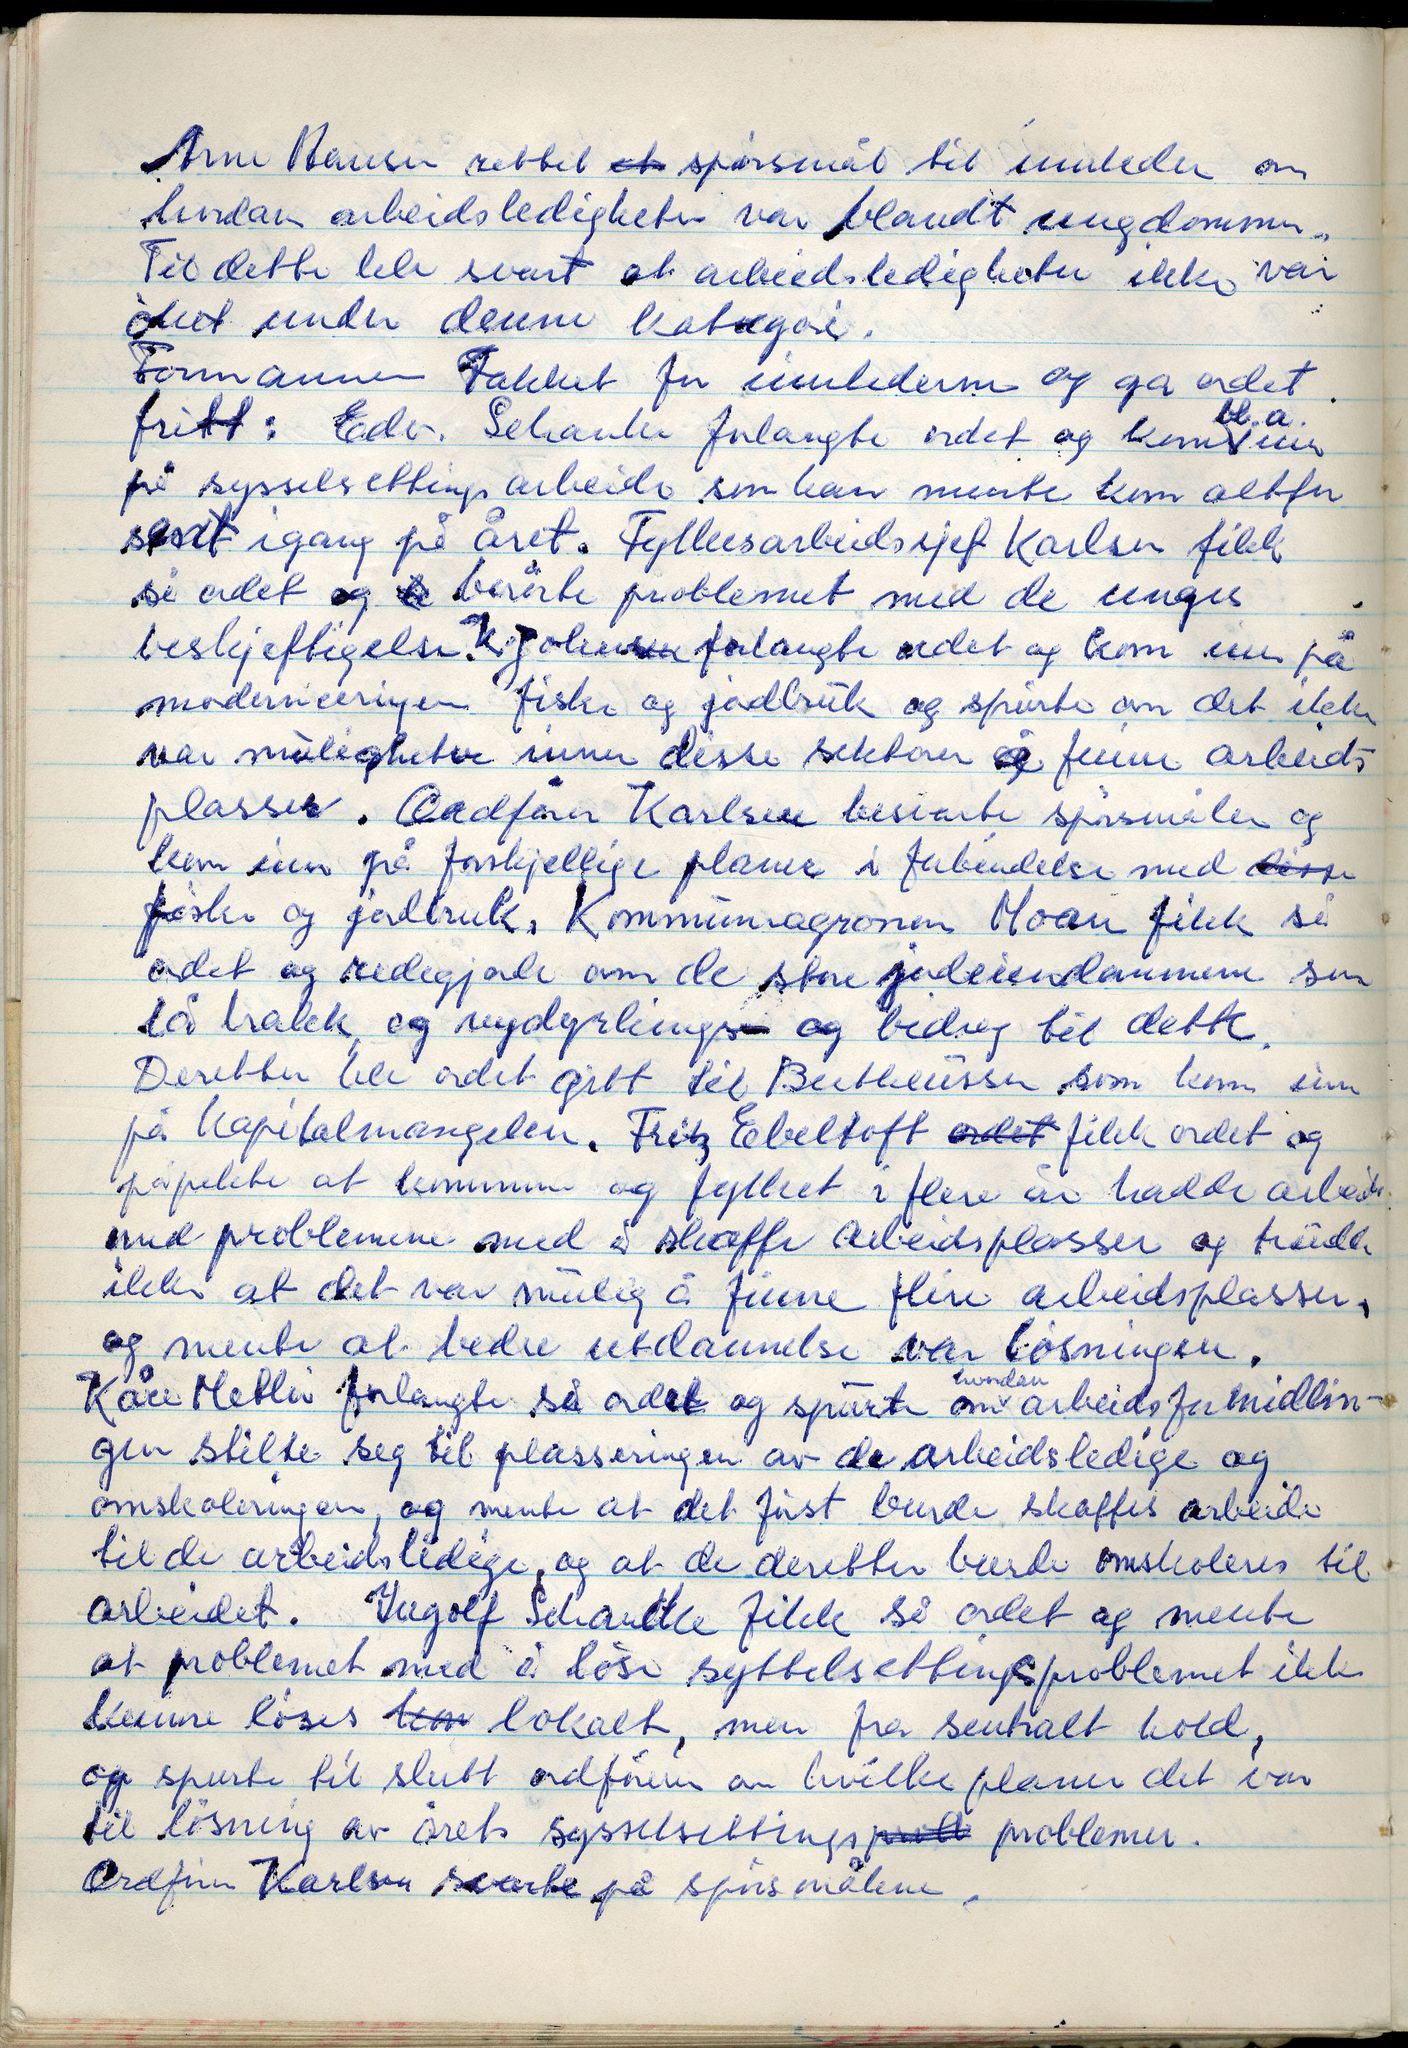 Arne Hansen rettet et spørsmål til innleder om
hvordan arbeidsledigheten var blandt ungdommen.
Til dette ble svart at arbeidsledigheten ikke var
öket under denne kategori.
Formannen Takket for innlederne og ga ordet
fritt: Edv. Schanke forlangte ordet og kom bl.a. inn
på sysselsettings arbeide som han mente kom altfor
sent igang på året. Fylkesarbeidssjef Karlsen fikk
så ordet og berörte problemet med de unges
beskjeftigelse. K. Johansen forlangte ordet og kom inn på
moderniseringen fiske og jordbruk og spurte om det ikke
var muligheter innen disse sektorer å finne arbeids-
plasser. Ordförer Karlsen besvarte spörsmålen og
kom inn på forskjellige planer i forbindelse med disse
fiske og jordbruk. Kommuneagronom Moan fikk så
ordet og redegjorde om de store jordeiendommene som
lå brakk, og nydyrkings og bidrag til dette.
Deretter ble ordet gitt til Bertheussen som kom inn
på Kapitalmangelen. Fritz Ebeltoft ordet fikk ordet og
påpekte at kommune og fylket i flere år hadde arbeidet
med problemene med å skaffe arbeidsplasser og trodde
ikke at det var mulig å finne flere arbeidsplasser,
og mente at bedre utdannelse var lösningen.
Kåre Metlis forlangte så ordet og spurte om hvordan arbeidsformidlin-
gen stilte seg til plasseringen av de arbeidsledige og
omskoleringen, og mente at det först burde skaffes arbeide
til de arbeidsledige, og at de deretter burde omskoleres til
arbeidet. Ingolf Schanke fikk så ordet og mente
at problemet med å löse syttelsettingsproblemet ikke
kunne löses kom lokalt, men fra sentralt hold,
og spurte til slutt ordföreren om hvilke planer det var
til lösning av årets sysselsettings problemer.
Ordförer Karlsen svarte på spörsmålene.